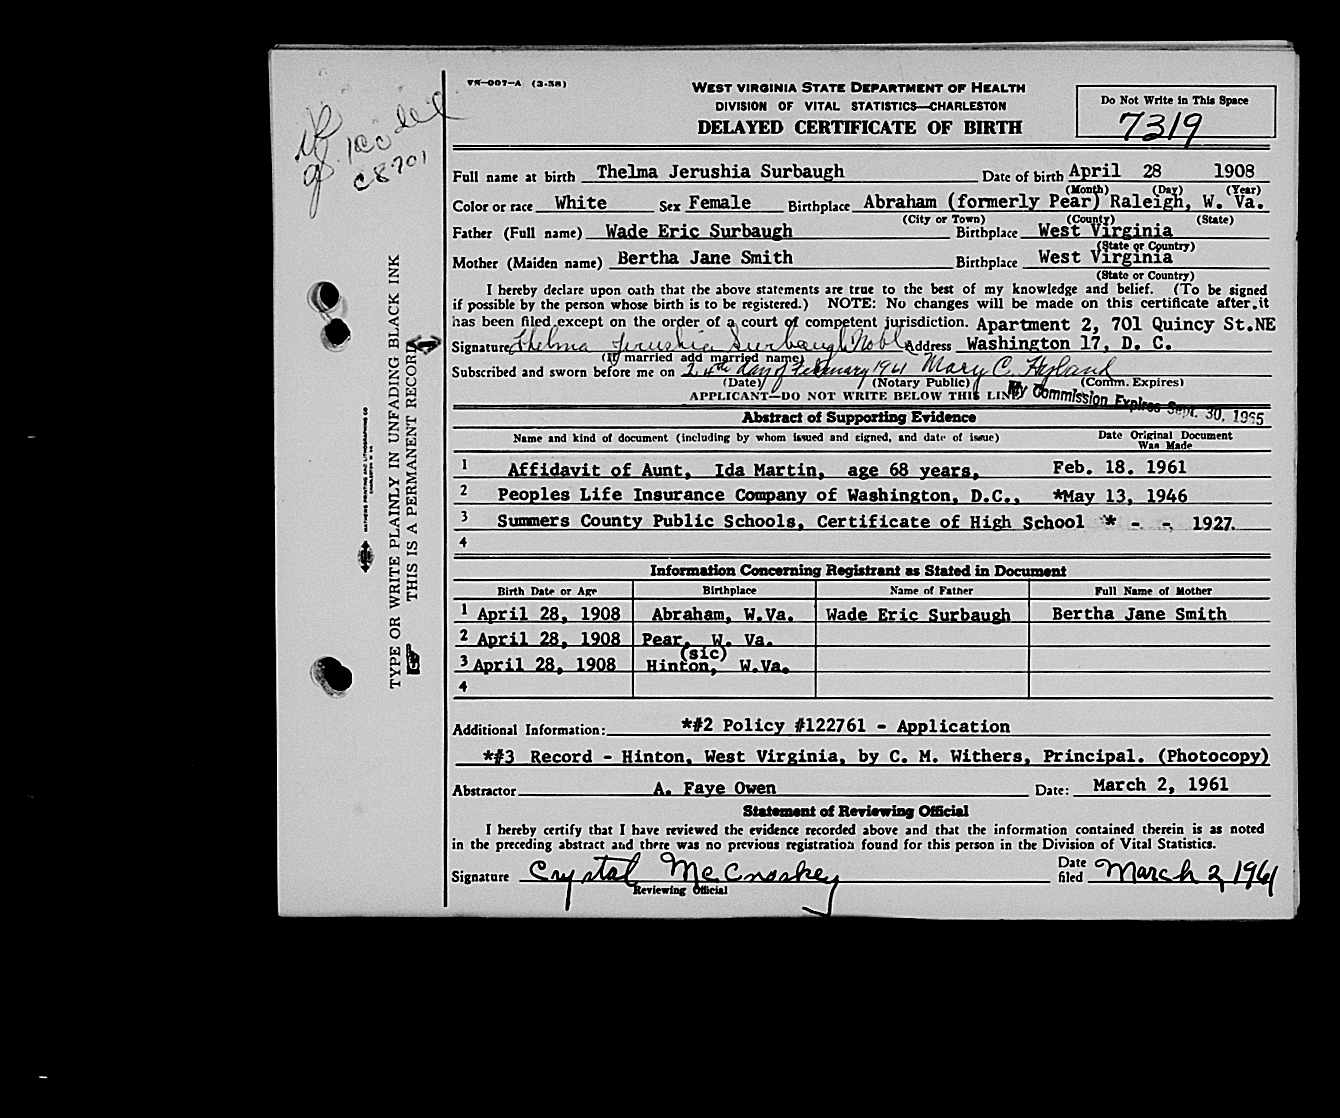 VR-007-A (3-58)
WEST VIRGINIA STATE DEPARTMENT OF HEALTH
DIVISION OF VITAL STATISTICS—CHARLESTON
DELAYED CERTIFICATE OF BIRTH
Do Not Write in This Space
7319
C8701
TYPE OR WRITE PLAINLY IN UNFADING BLACK INK
THIS IS A PERMANENT RECORD
Full name at birth Thelma Jerushia Surbaugh Date of birth April 28 1908
(Month) (Day) (Year)
Color or race White Sex Female Birthplace Abraham (formerly Pear) Raleigh, W. Va.
(City or Town) (County) (State)
Father (Full name) Wade Eric Surbaugh Birthplace West Virginia
(State or Country)
Mother (Maiden name) Bertha Jane Smith Birthplace West Virginia
(State or Country)
I hereby declare upon oath that the above statements are true to the best of my knowledge and belief. (To be signed
if possible by the person whose birth is to be registered.) NOTE: No changes will be made on this certificate after it
has been filed except on the order of a court of competent jurisdiction. Apartment 2, 701 Quincy St.NE
Signature Thelma Jerushia Surbaugh Noble Address Washington 17, D. C.
(If married add married name)
Subscribed and sworn before me on 24th day of February 1961 Mary C. Hyland
(Date) (Notary Public) (Comm. Expires)
APPLICANT—DO NOT WRITE BELOW THIS LINE
My Commission Expires Sept. 30, 1965
Abstract of Supporting Evidence
Name and kind of document (including by whom issued and signed, and date of issue) Date Original Document
Was Made
1 Affidavit of Aunt, Ida Martin, age 68 years, Feb. 18. 1961
2 Peoples Life Insurance Company of Washington, D.C., *May 13, 1946
3 Summers County Public Schools, Certificate of High School * - -, 1927.
4
Information Concerning Registrant as Stated in Document
Birth Date or Age Birthplace Name of Father Full Name of Mother
1 April 28, 1908 Abraham, W.Va. Wade Eric Surbaugh Bertha Jane Smith
2 April 28, 1908 Pear, W. Va.
(sic)
3 April 28, 1908 Hinton, W.Va.
4
Additional Information: *#2 Policy #122761 - Application
*#3 Record - Hinton, West Virginia, by C. M. Withers, Principal. (Photocopy)
Abstractor A. Faye Owen Date: March 2, 1961
Statement of Reviewing Official
I hereby certify that I have reviewed the evidence recorded above and that the information contained therein is as noted
in the preceding abstract and there was no previous registration found for this person in the Division of Vital Statistics.
Date
Signature Crystal McCroskey filed March 2, 1961
Reviewing Official